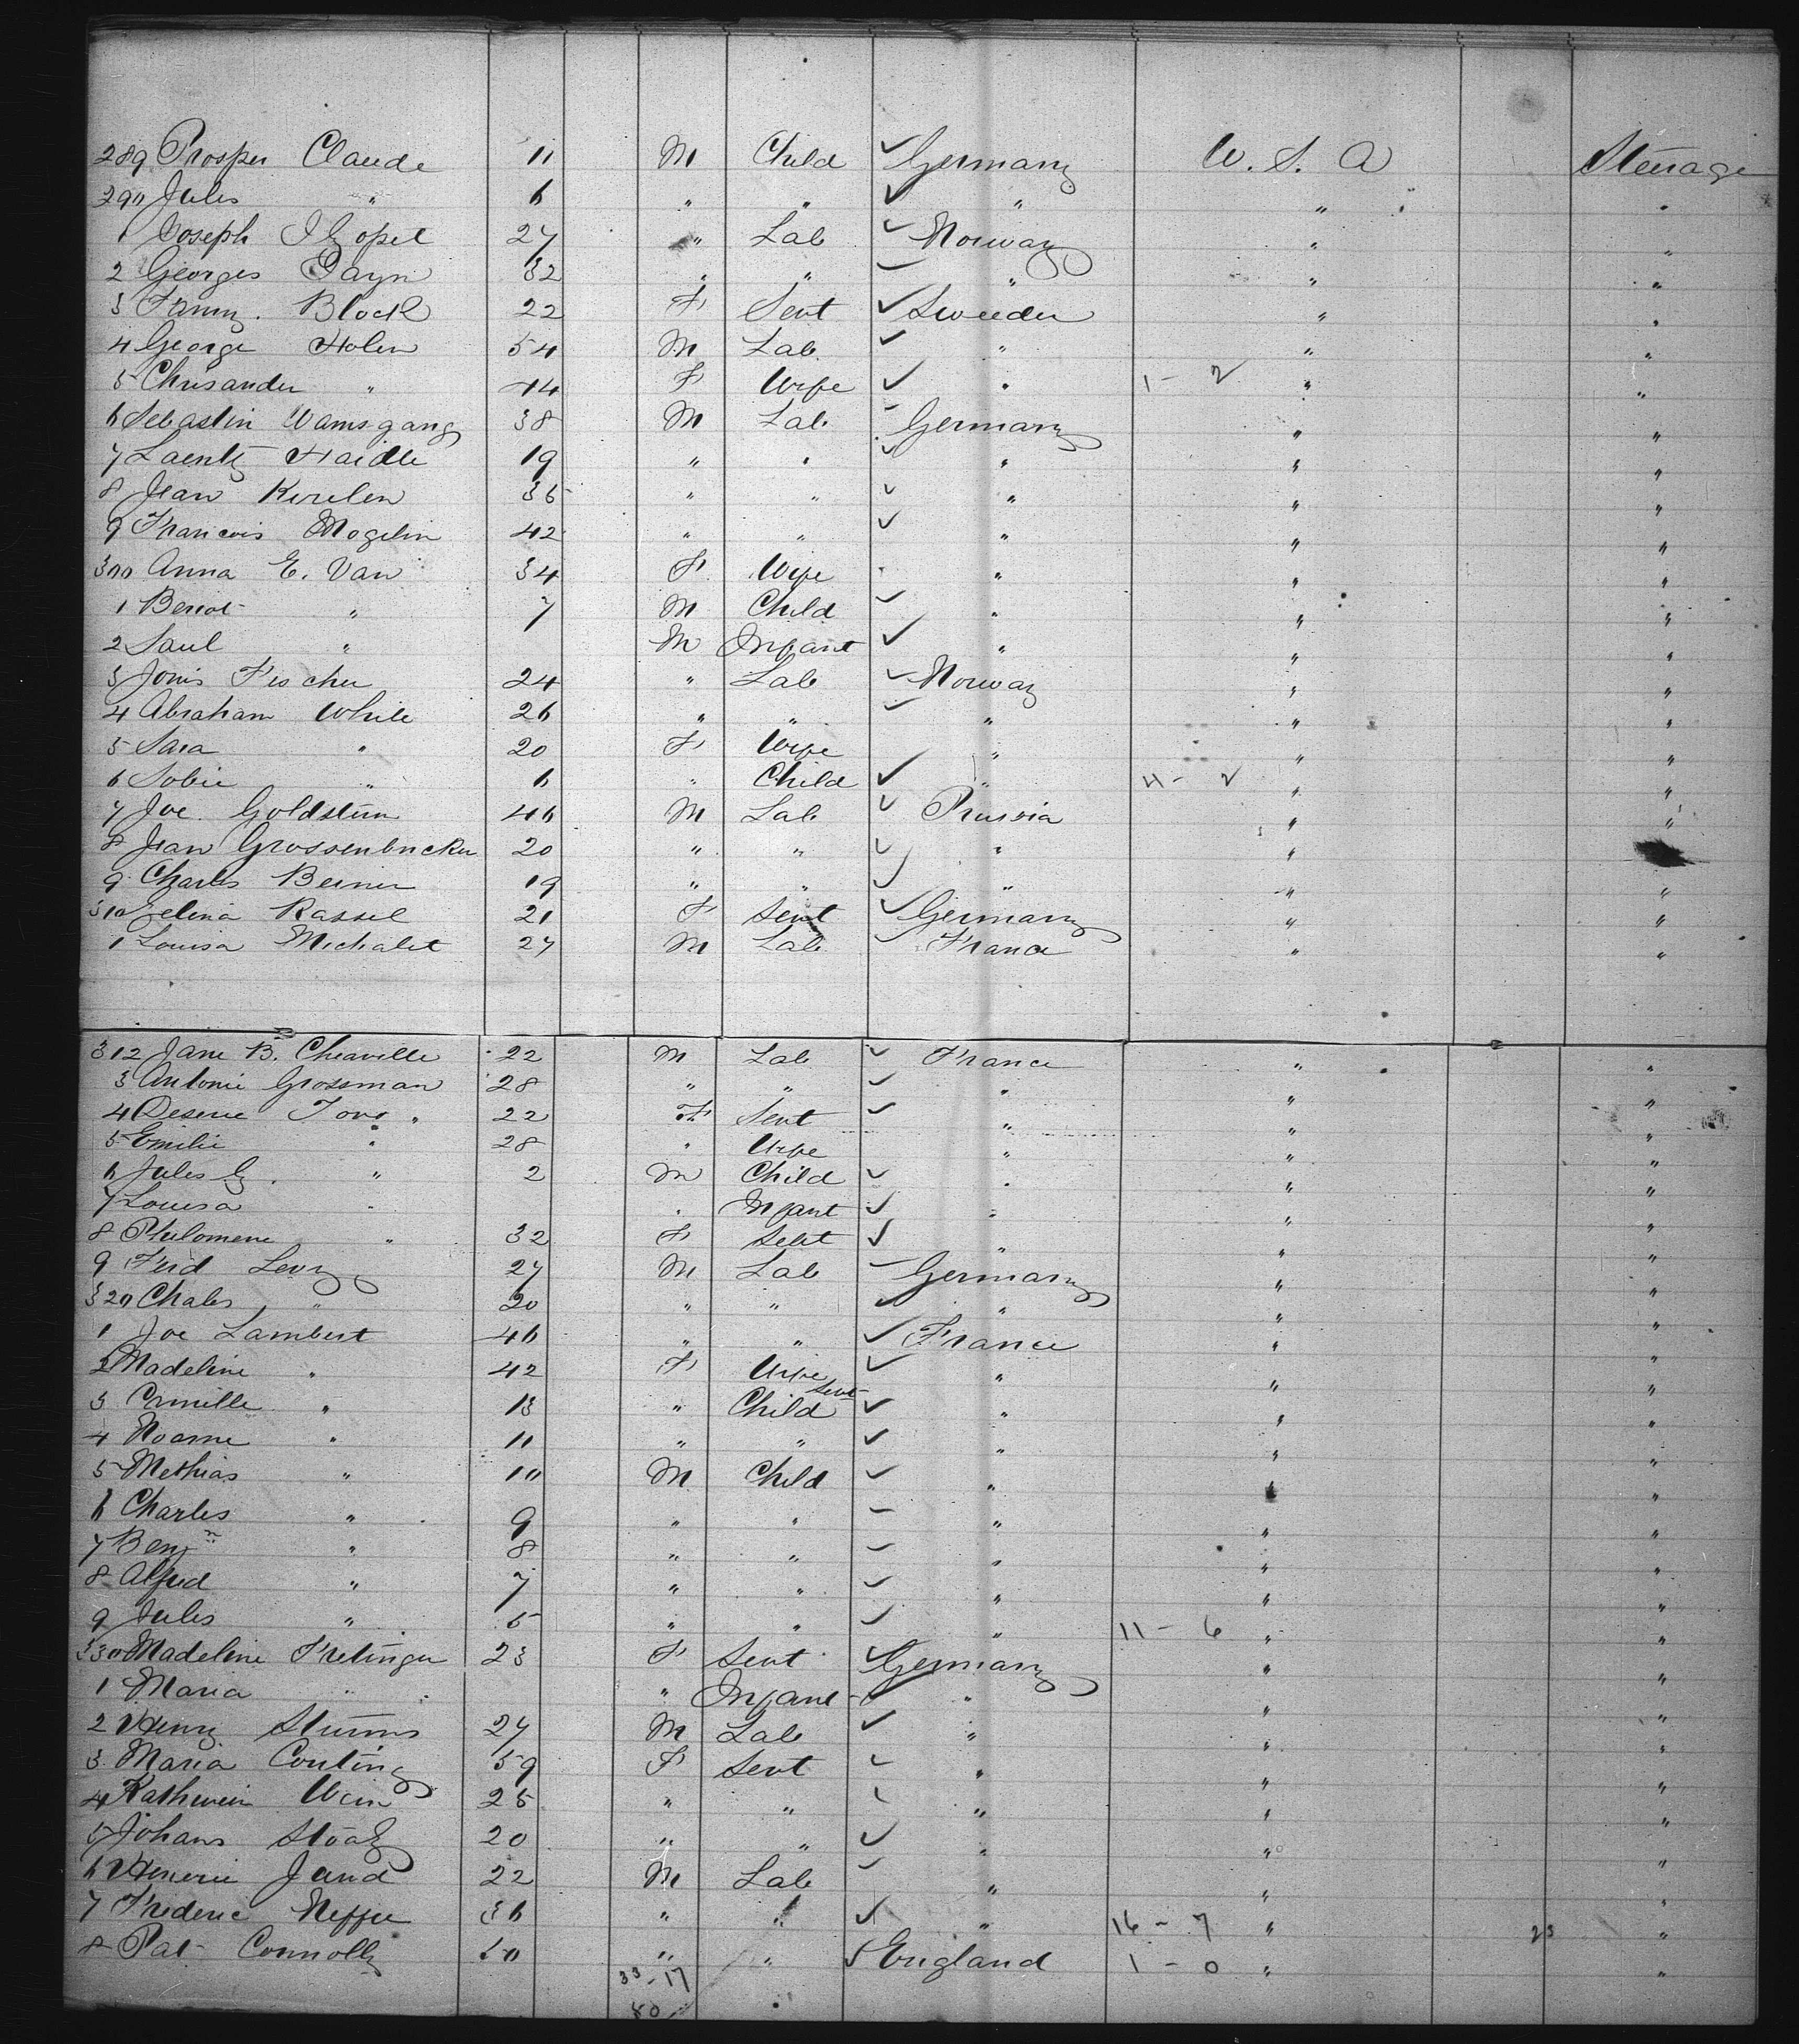 289 Prosper Claude 11 M Child ✓ Germany U. S. A Steerage
290 Jules " 6 " " ✓ " " "
1 Joseph 27 " Lab ✓ Norway " "
2 Georges Payn 32 " " ✓ " " "
3 Fanny Block 22 F Sevt ✓ Sweeden " "
4 George Holen 54 M Lab ✓ " " "
5 Chrisander " 44 F Wife ✓ " 1 - 2 " "
6 Sebastin Wamsgang 38 M Lab ✓ Germany " "
7 Laentz Haidle 19 " " ✓ " " "
8 Jean Kirelen 36 " " ✓ " " "
9 Francois Mogelin 42 " " ✓ " " "
300 Anna E. Van 34 F Wife " " "
1 " 7 M Child ✓ " " "
2 Saul " M Infant ✓ " " "
3 Jonis Fischer 24 " Lab ✓ Norway " "
4 Abraham White 26 " " ✓ " " "
5 Sara " 20 F Wife " " "
6 Sobie " 6 " Child ✓ " 4 - 2 " "
7 Joe Goldstein 46 M Lab ✓ Prussia " "
8 Jean Grossenbucker 20 " " ✓ " "
9 Charles Bernier 19 " " ✓ " " "
310 Zelina Rassel 21 F Sevt ✓ Germany " "
1 Louisa Michalet 27 M Lab ✓ France " "
312 Jane B. Cheaville 22 M Lab ✓ France " "
3 Antonie Grossman 28 " " ✓ " " "
4 Deserie " 22 F Sevt ✓ " " "
5 Emilie " 28 " Wife " " "
6 Jules G. " 2 M Child ✓ " " "
7 Louisa " " Infant ✓ " " "
8 Philomene " 32 F Sevt ✓ " " "
9 Ferd Levy 27 M Lab ✓ Germany " "
320 Chales " 20 " " ✓ " " "
1 Joe Lambert 46 " " ✓ France " "
2 Madeline " 42 F Wife ✓ " " "
3 Cmille " 13 " Child Sevt ✓ " " "
4 Noame " 11 " " ✓ " " "
5 Methias " 10 M Child ✓ " " "
6 Charles " 9 " " ✓ " " "
7 Benjn " 8 " " ✓ " " "
8 Alfred " 7 " " ✓ " " "
9 Jules " 5 " " ✓ " 11 - 6 " "
330 Madeline Fretinger 23 F Sevt ✓ Germany " "
1 Maria " " Infant ✓ " " "
2 Henry Stumms 27 M Lab ✓ " " "
3 Maria Conting 59 F Sevt ✓ " " "
4 25 " " ✓ " " "
5 Johans 20 " " ✓ " " "
6 Henerie Jand 22 M Lab ✓ " " "
7 Frederic Neffee 36 " " ✓ " 16 - 7 " 23 "
8 Pat Connolly " " ✓ England 1 - 0 " "
33 - 17
80